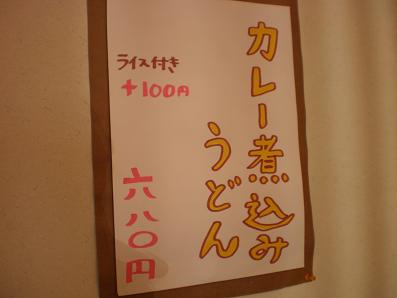 カレー煮込み
うどん
ライス付き
+100円
六八〇円